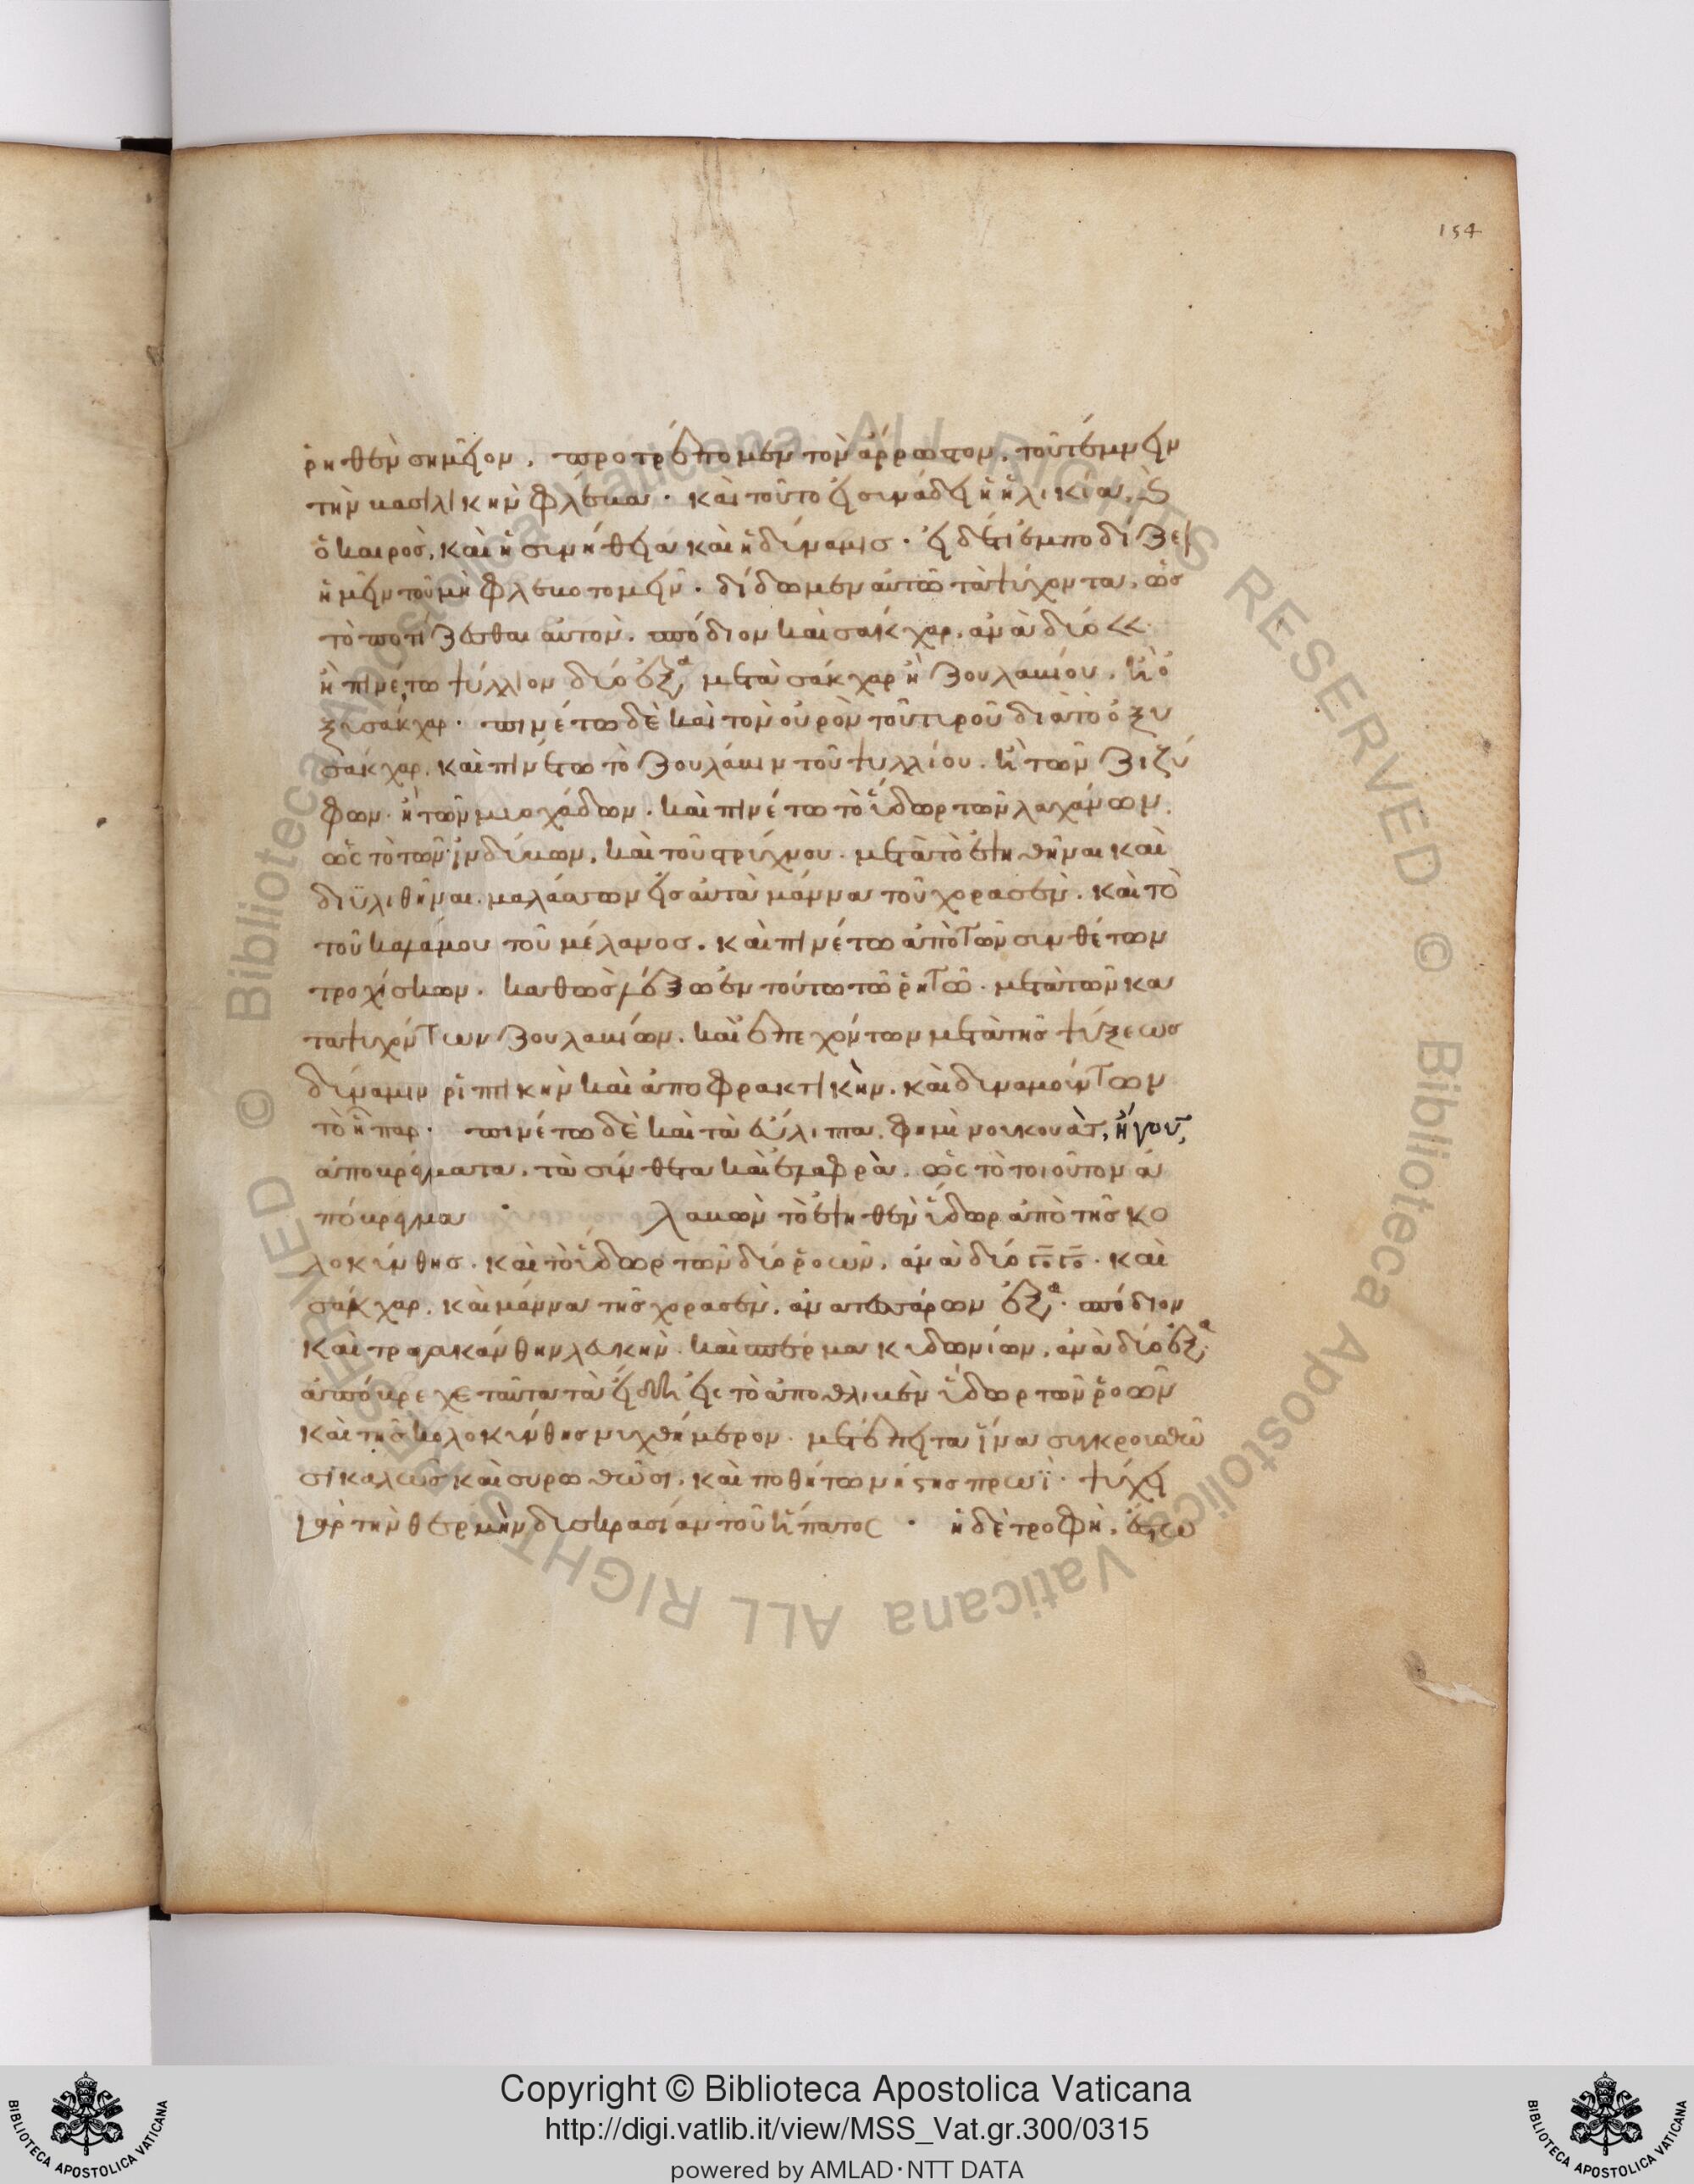 154
ῥηθὲν σημεῖον, προτρέπομεν τὸν ἄρρωστον, τοῦ τέμνειν
τὴν βασιλικὴν φλέβα· καὶ τοῦτο εἰ συνάδει ἡ ἡλικία, καὶ
ὁ καιρὸς, καὶ ἡ συνήθεια καὶ ἡ δύναμις· εἰ δέ τι ἐμποδίζει
ἡμῖν τοῦ μὴ φλεβοτομεῖν· δίδωμεν αὐτῶ τὰ ψύχοντα, ὡς
τὸ ποτίζεσθαι αὐτὸν, σπόδιον καὶ σάκχαρ, ἀνὰ δύο <<
ἢ πινέτω ψύλλιον δύο ἑξα μετὰ σάκχαρ ἢ ζουλαπίου, ἢ ὀ
ξυσάκχαρ· πινέτω δὲ καὶ τὸν οὐρὸν τοῦ τυροῦ διὰ τὸ ὀξυ
σάκχαρ, καὶ πινέτω τὸ ζουλάπιν τοῦ ψυλλίου, ἢ τῶν ζιζύ
φων· ἢ τῶν μυοχάδων· καὶ πινέτω τὸ ὕδωρ τῶν λαχάνων,
ὡς τὸ τῶν ἰνδύβων, καὶ τοῦ στρύχνου· μετὰ τὸ ἑψηθῆναι καὶ
διϋλιθῆναι· μαλάσσων εἰς αὐτὰ μάννα τοῦ χορασὲν, καὶ τὸ
τοῦ καλάμου τοῦ μέλανος· καὶ πινέτω ἀπὸ τῶν συνθέτων
τροχίσκων, καθὼς λέξω ἐν τούτω τῶ ῥητῶ· μετὰ τῶν κα
ταψυχόντων ζουλαπίων, καὶ ἐπεχόντων μετὰ τῆς ψύξεως
δύναμιν ῥιπτικὴν καὶ ἀποφρακτικὴν, καὶ δυναμούντων
τὸ ἧπαρ· πινέτω δὲ καὶ τὰ εὔλιπα, φημὶ νουκουὰτ, ἤγουν
ἀποβρέγματα, τὰ σύνθετα καὶ ἐλαφρὰ, ὡς τὸ τοιοῦτον ἀ
πόβρεγμα· λαβὼν τὸ ἑψηθὲν ὕδωρ ἀπὸ τῆς κο
λοκύνθης, καὶ τὸ ὕδωρ τῶν δύο ῥοων, ἀνὰ δύο · καὶ
σάκχαρ, καὶ μάννα τῆς χορασὲν, ἀνὰ τεσσάρων ἑξα· σπόδιον
καὶ τραγακάνθην λευκὴν, καὶ σπέρμα κυδωνίων, ἀνὰ δύο ἑξα
ἀπόβρεχε ταῦτα τὰ εἴδη εἰς τὸ ἀποθλιβὲν ὕδωρ τῶν ῥοων
καὶ τῆς κολοκύνθης νυχθήμερον· μετέπειτα ἵνα συγκρουσθῶ
σι καλῶς καὶ συρωθῶσι, καὶ ποθήτω νήστης πρωῒ· ψύχει
γὰρ τὴν θερμὴν δυσκρασίαν τοῦ ἥπατος · ἡ δὲ τροφὴ, ἔστω
Copyright © Biblioteca Apostolica Vaticana
http://digi.vatlib.it/view/MSS_Vat.gr.300/0315
powered by AMLAD·NTT DATA
BIBLIOTECA APOSTOLICA VATICANA
BIBLIOTECA APOSTOLICA VATICANA
© Biblioteca Apostolica Vaticana ALL RIGHTS RESERVED © Biblioteca Apostolica Vaticana ALL RIGHTS RESERVED